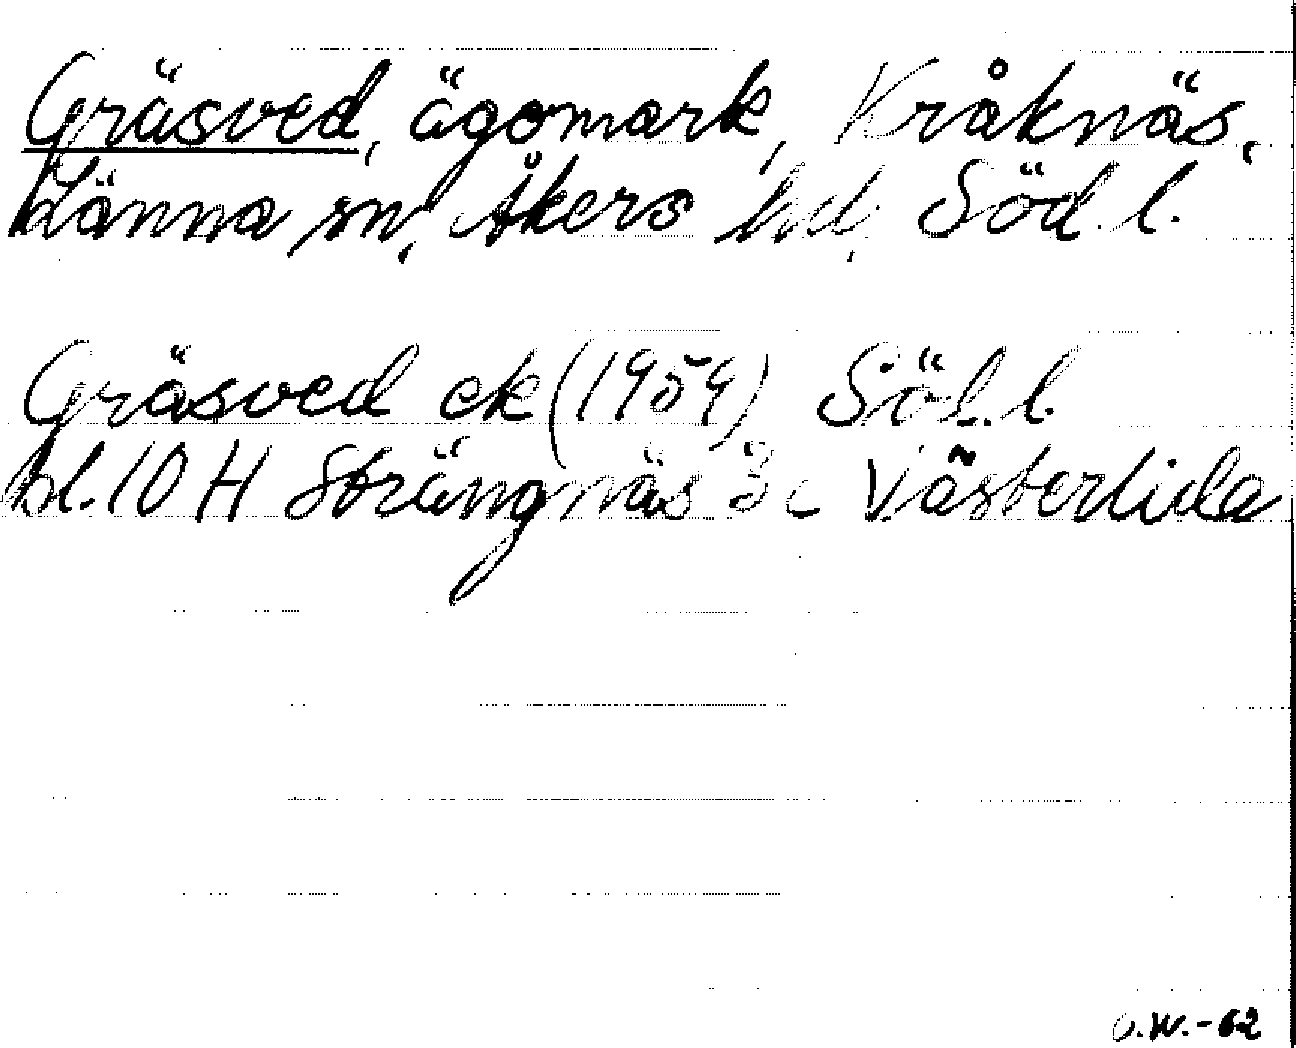 Gräsved, ägomark, Kråknäs,
Länna sn, Åkers hd, Söd. l.
Gräsved ek (1959) Söd. l.
bl. 10 H Strängnäs 3 c Västerlida
O.W.-62